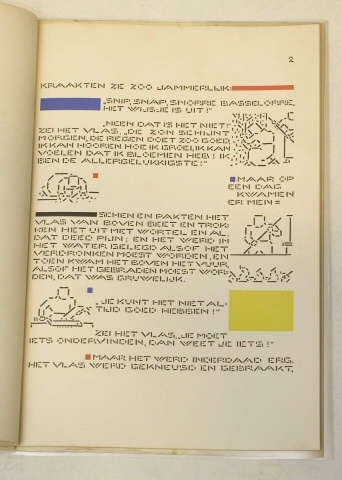 2
KRAAKTEN ZE ZOO JAMMERLIJK:
„SNIP, SNAP, SNORRE BASSELORRE,
HET WIJSJE IS UIT!”
„NEEN DAT IS HET NIET!”
ZEI HET VLAS. „DE ZON SCHIJNT
MORGEN, DE REGEN DOET ZOO GOED,
IK KAN HOOREN HOE IK GROEI, IK KAN
VOELEN DAT IK BLOEMEN HEB! IK
BEN DE ALLERGELUKKIGSTE!”
MAAR OP
EEN DAG
KWAMEN
ER MEN=
SCHEN EN PAKTEN HET
VLAS VAN BOVEN BEET EN TROK-
KEN HET UIT MET WORTEL EN AL,
DAT DEED PIJN; EN HET WERD IN
HET WATER GELEGD ALSOF HET
VERDRONKEN MOEST WORDEN, EN
TOEN KWAM HET BOVEN HET VUUR
ALSOF HET GEBRADEN MOEST WOR-
DEN, DAT WAS GRUWELIJK.
„JE KUNT HET NIET AL-
TIJD GOED HEBBEN!”
ZEI HET VLAS, „JE MOET
IETS ONDERVINDEN, DAN WEET JE IETS!”
MAAR HET WERD INDERDAAD ERG.
HET VLAS WERD GEKNEUSD EN GEBRAAKT,